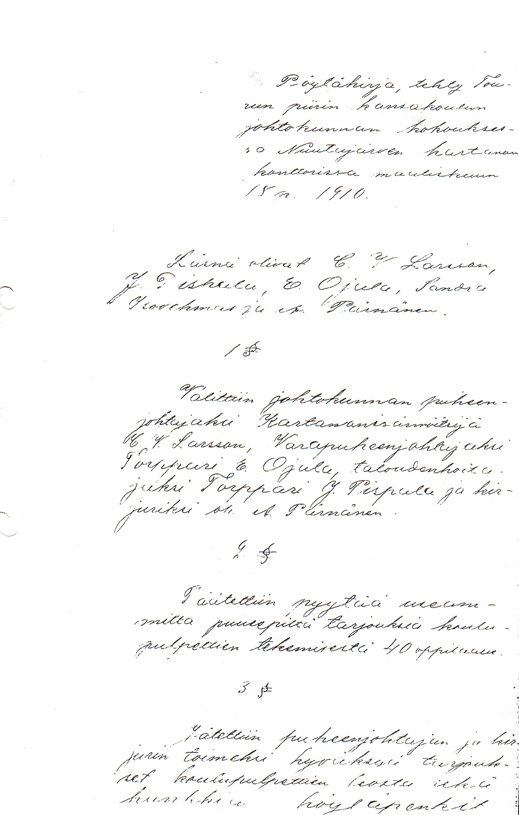 Pöytäkirja, tehty Tou-
run piirin kansakoulun
johtokunnan kokoukses-
sa Nuutajärven kartanon
konttorissa maaliskuun
15 p. 1910.
Läsnä olivat C. V. Larsson,
J. Pispala, E. Ojula, Sandra
ja A. Pärnänen.
1 §
Valittiin johtokunnan puheen-
johtajaksi Kartanonisännöitsijä
C. V. Larsson, Varapuheenjohtajaksi
Torppari E. Ojula, taloudenhoita-
jaksi Torppari J. Pispala ja kir-
juriksi A. Pärnänen.
2 §
Päätettiin pyytää useam-
milta puusepiltä tarjouksia koulu-
pulpettien tekemisestä 40 oppilaalle.
3 §
Jätettiin puheenjohtajan ja kir-
jurin toimeksi hyväksyä tarjouk-
set koulupulpettien sekä
höyläpenkit